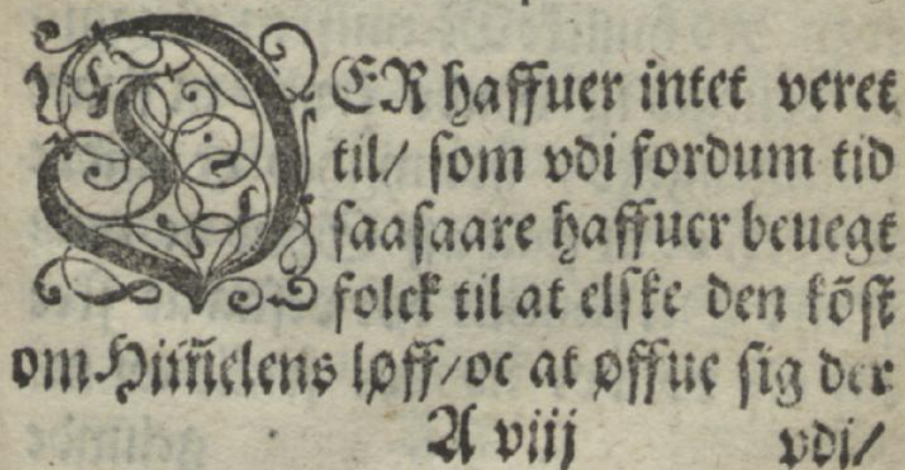 DER haffuer intet veret
til/ som vdi fordum tid
saasaare haffuer beuegt
folck til at elske den kõst
om Him̃elens løff/ oc at øffue sig der
A viij vdi/